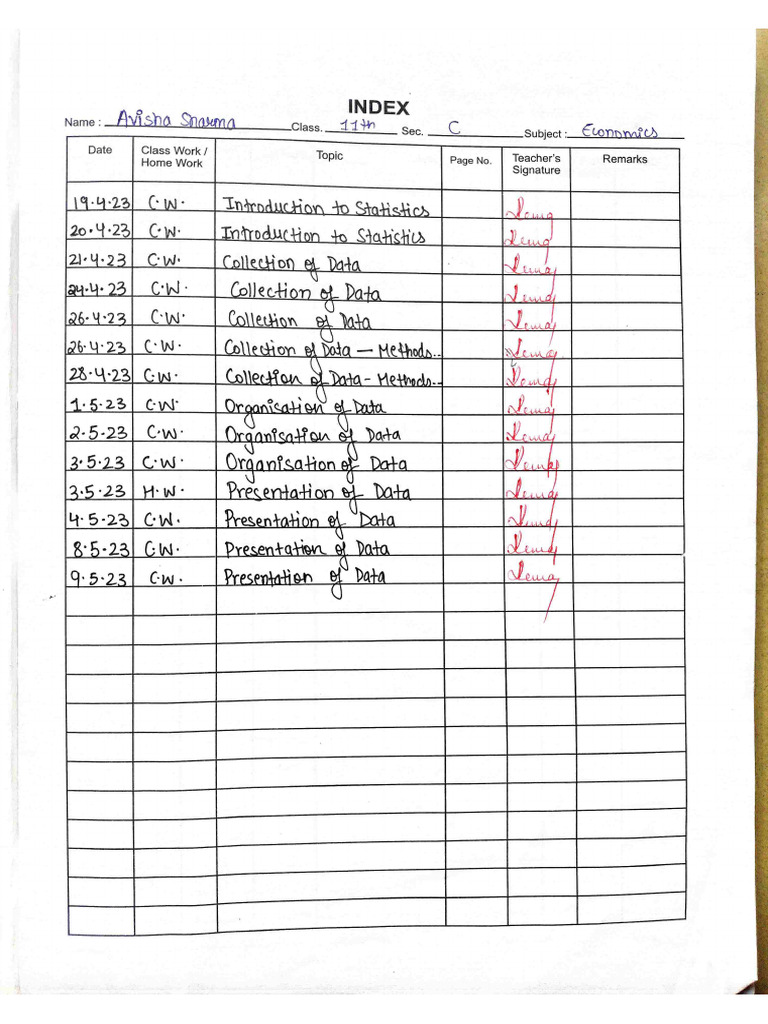 INDEX
Name : Avisha Sharma Class. 11th Sec. C Subject : Economics
Date Class Work / Home Work Topic Page No. Teacher's Signature Remarks
19.4.23 C.W. Introduction to Statistics
20.4.23 C.W. Introduction to Statistics
21.4.23 C.W. Collection of Data
24.4.23 C.W. Collection of Data
26.4.23 C.W. Collection of Data
26.4.23 C.W. Collection of Data — Methods..
28.4.23 C.W. Collection of Data - Methods..
1.5.23 C.W. Organisation of Data
2.5.23 C.W. Organisation of Data
3.5.23 C.W. Organisation of Data
3.5.23 H.W. Presentation of Data
4.5.23 C.W. Presentation of Data
8.5.23 C.W. Presentation of Data
9.5.23 C.W. Presentation of Data